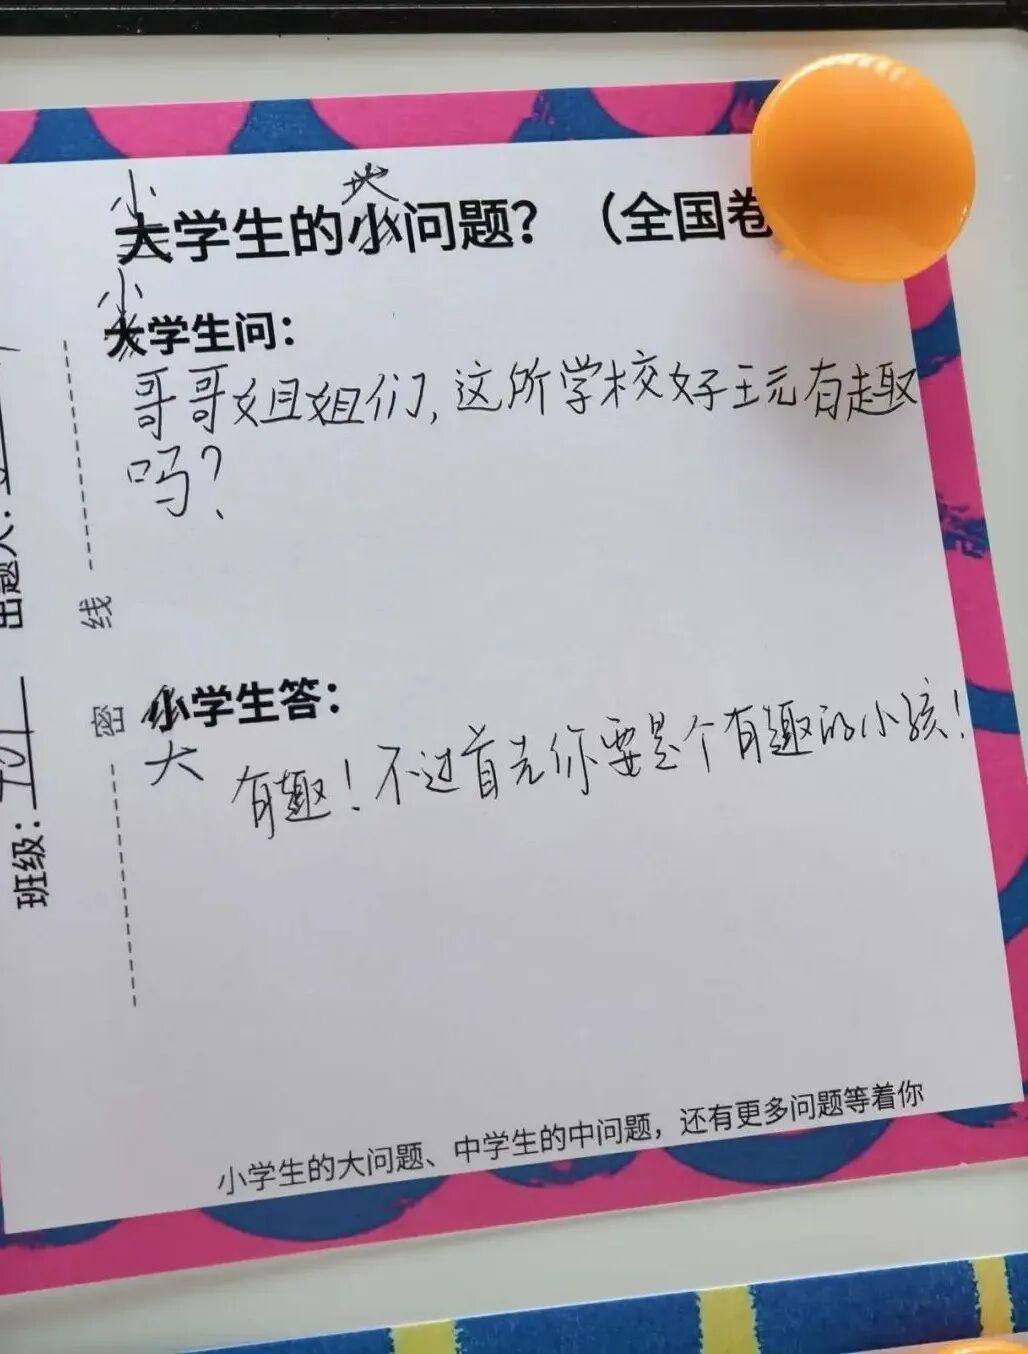 小 大
大学生的小问题？（全国卷
小
大学生问：
哥哥姐姐们，这所学校好玩有趣
吗？
小学生答：
大
有趣！不过首先你要是个有趣的小孩！
小学生的大问题、中学生的中问题，还有更多问题等着你
密 线
班级：701 出题人：